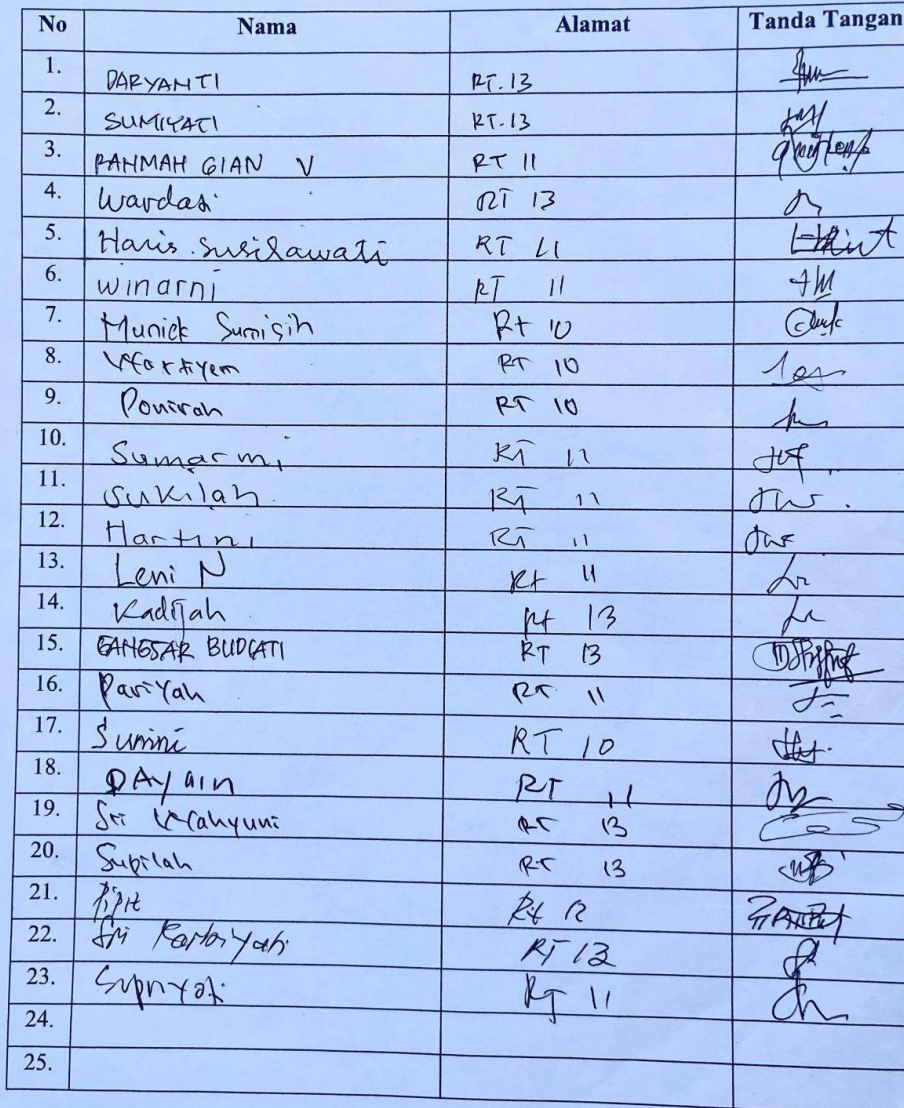 No Nama Alamat Tanda Tangan
1. DARYANTI RT.13
2. SUMIYATI RT.13
3. RAHMAH GIAN V RT 11
4. Wardasi RT 13
5. Haris Susilawati RT 11
6. Winarni RT 11
7. Munick Sumisih Rt 10
8. RT 10
9. Ponirah RT 10
10. Sumarmi RT 11
11. Sukilah RT 11
12. Hartini RT 11
13. Leni N Rt 11
14. Kadijah Rt 13
15. GANGSAR BUDIATI RT 13
16. Pariyah RT 11
17. Sumini RT 10
18. DAYAIN RT 11
19. Sri Wahyuni RT 13
20. Supilah RT 13
21. Pipit Rt 12
22. Sri RT 13
23. Supriyati RT 11
24.
25.